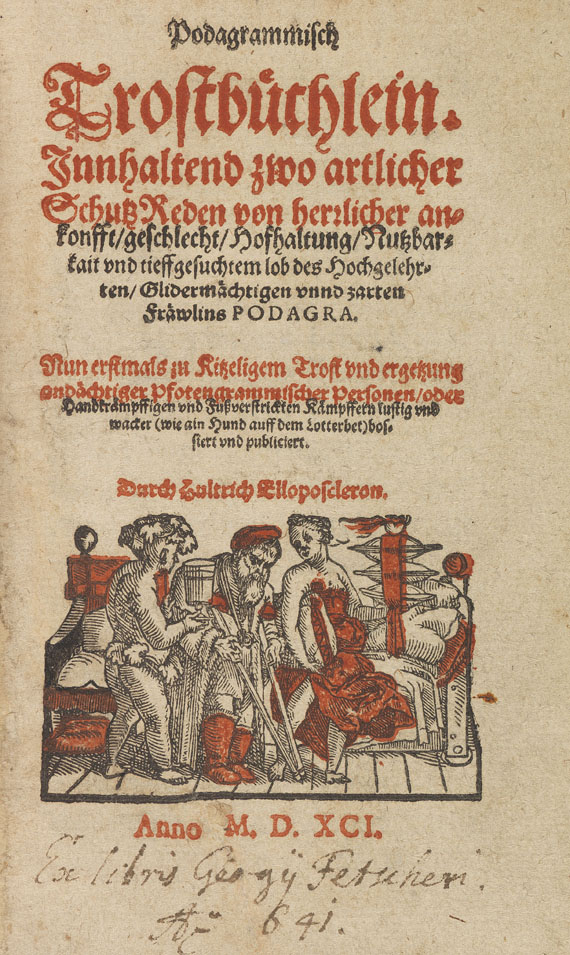 Podagrammisch
Trostbůchlein.
Innhaltend zwo artlicher
SchutzReden von herrlicher an-
konfft/geschlecht/Hofhaltung/Nutzbar-
kait vnd tieffgesuchtem lob des Hochgelehr-
ten/Glidermächtigen vnnd zarten
Fräwlins PODAGRA.
Nun erstmals zu Kitzeligem Trost vnd ergetzung
andächtiger Pfotengrammischer Personen/oder
Handkrämpffigen vnd Fußverstrickten Kämpffern lustig vnd
wacker (wie ain Hund auff dem Lotterbet) bos-
siert vnd publiciert.
Durch Hultrich Elloposcleron.
Anno M. D. XCI.
Ex libris Georgÿ Fetscheri.
Aō 641.